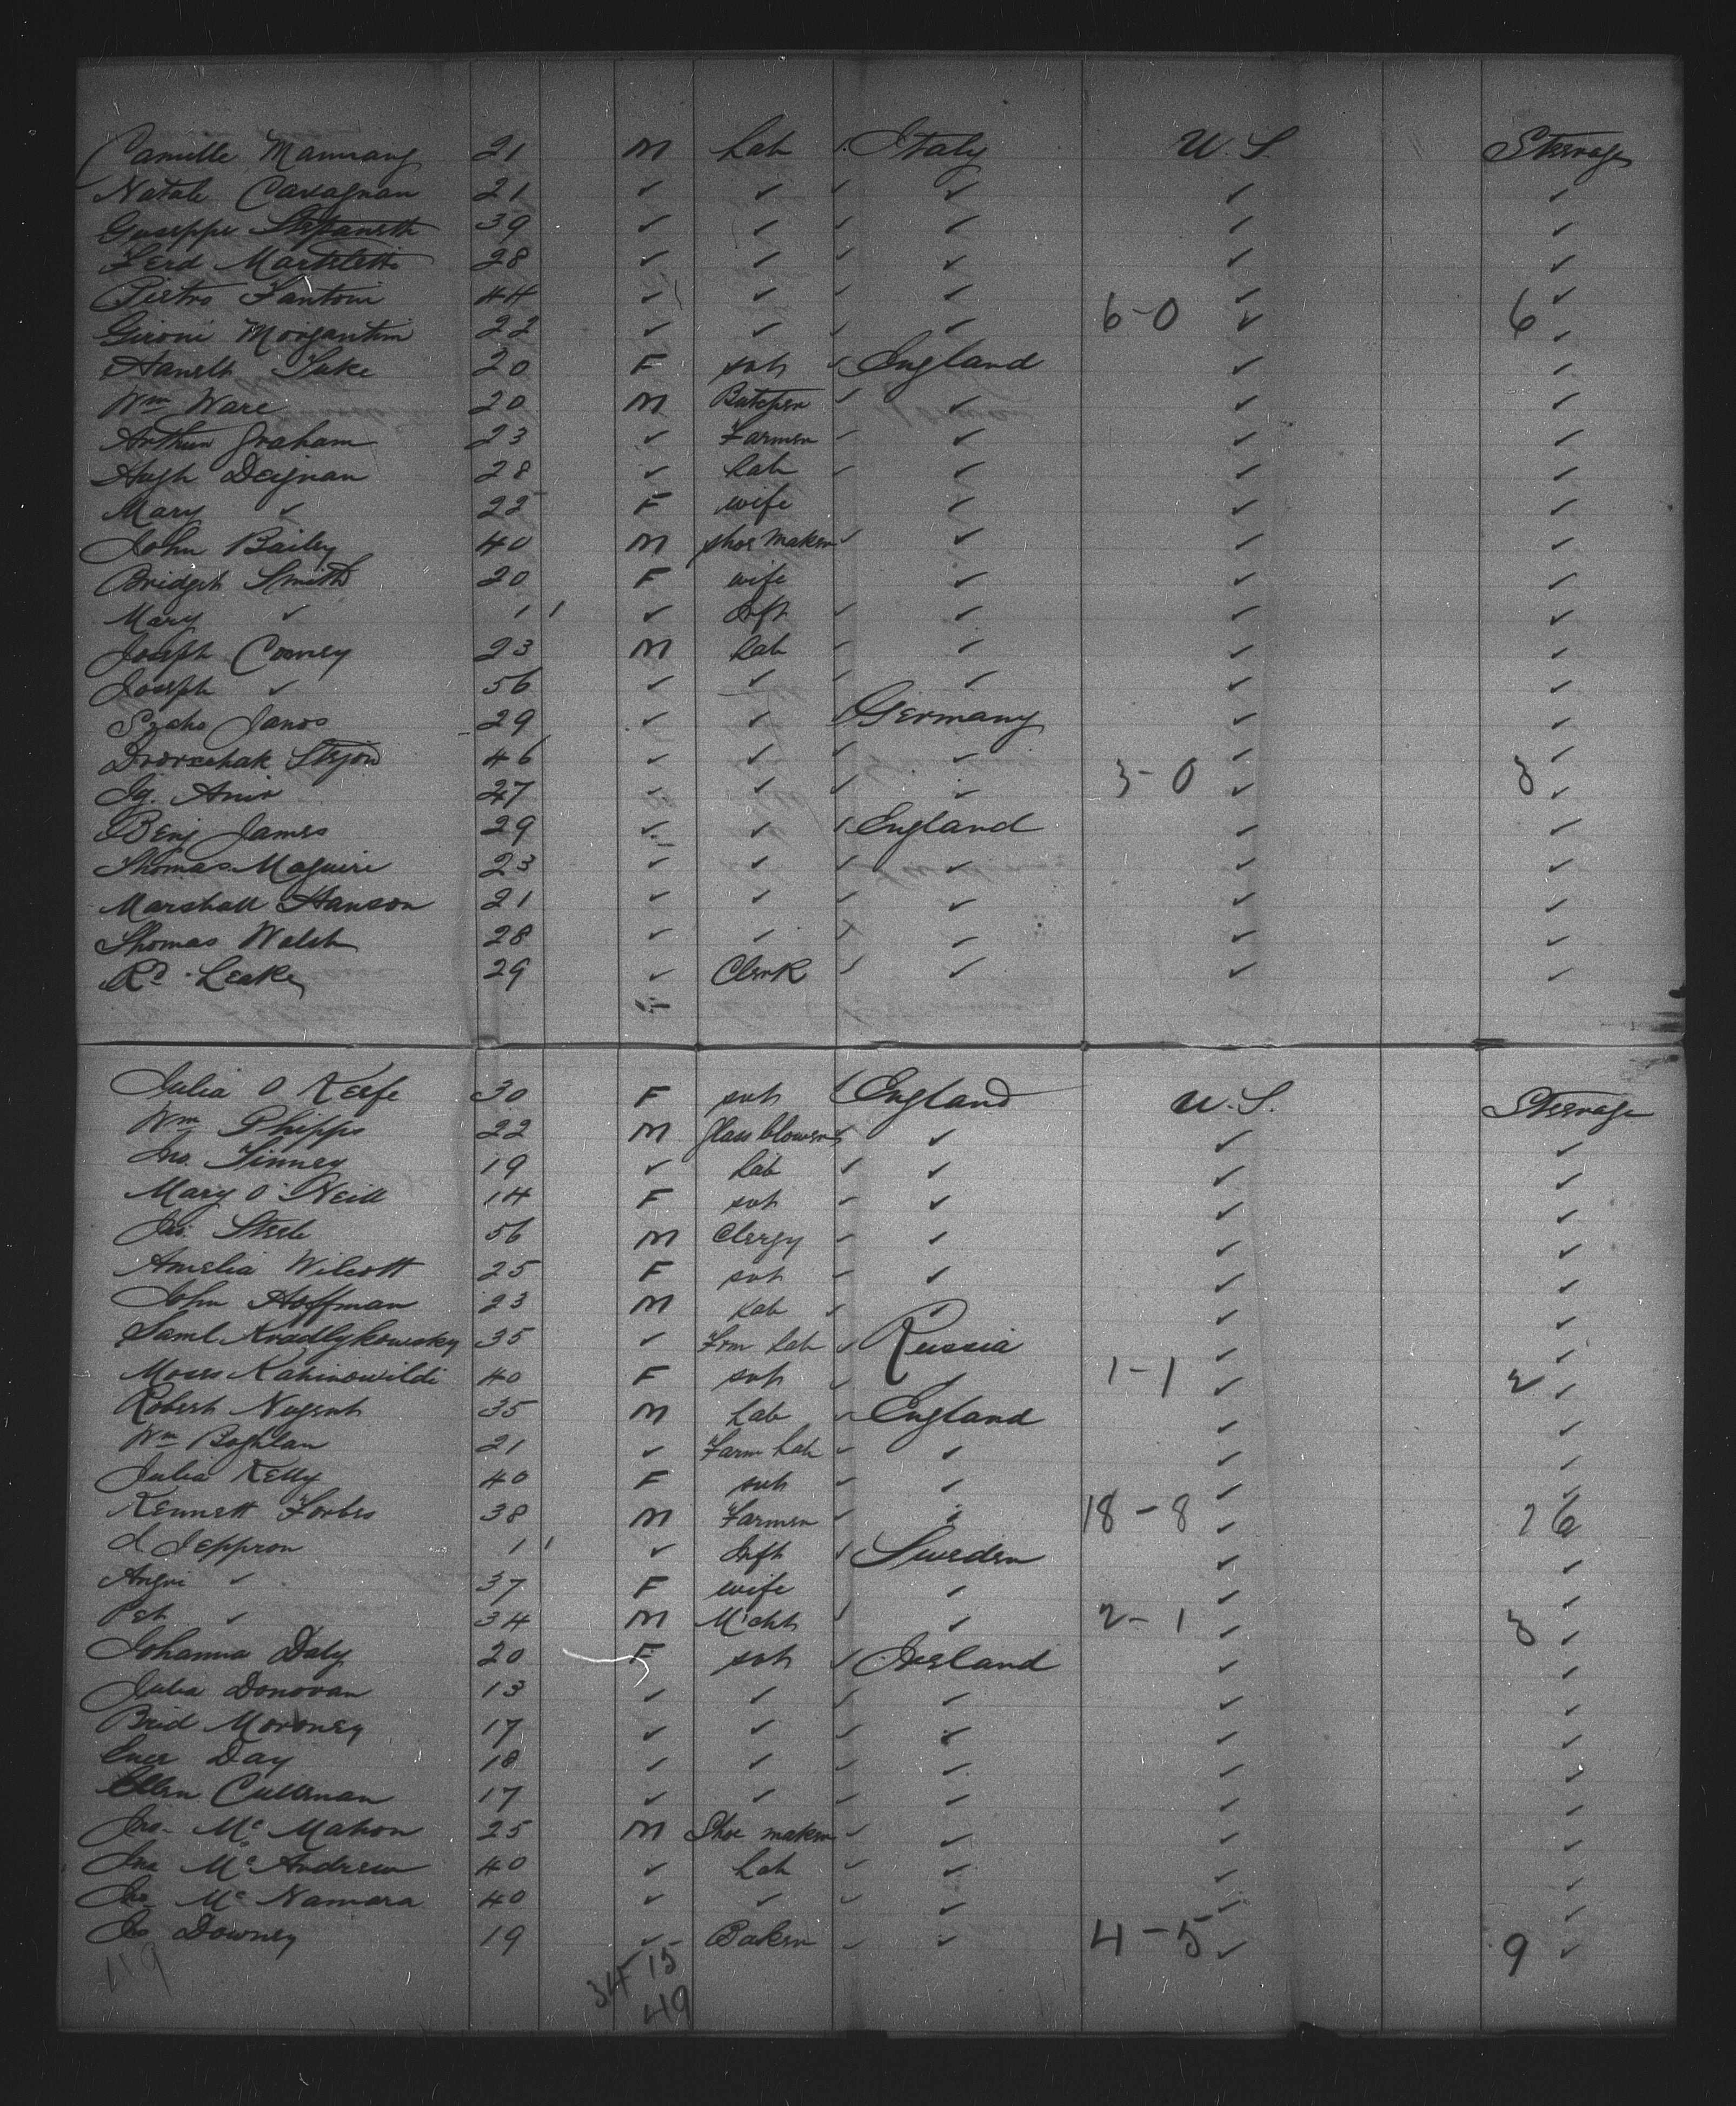 Camille 21 M Lab Italy U. S. Steerage
Natale Cavagnan 21 ✓ ✓ ✓ ✓ ✓ ✓
Guseppe Stefaneth 39 ✓ ✓ ✓ ✓ ✓ ✓
Ferd Marteletti 28 ✓ ✓ ✓ ✓ ✓ ✓
Pietro Fantoni 44 ✓ ✓ ✓ ✓ ✓ ✓
Gironi Morgantini 22 ✓ ✓ ✓ ✓ 6-0 ✓ 6 ✓
20 F svt ✓ England ✓ ✓
Wm Ware 20 M Butcher ✓ ✓ ✓ ✓
Arthur Graham 23 ✓ Farmer ✓ ✓ ✓ ✓
Hugh Deignan 28 ✓ Lab ✓ ✓ ✓ ✓
Mary ✓ 22 F wife ✓ ✓ ✓
John Bailey 40 M Shoe Maker ✓ ✓ ✓ ✓
Bridget Smith 20 F wife ✓ ✓ ✓
Mary ✓ 1 1 ✓ Inft ✓ ✓ ✓ ✓
Joseph Comey 23 M Lab ✓ ✓ ✓ ✓
Joseph ✓ 56 ✓ ✓ ✓ ✓ ✓ ✓
Szaho Janos 29 ✓ ✓ Germany ✓ ✓
46 ✓ ✓ ✓ ✓ ✓ ✓
Ig. 27 ✓ ✓ ✓ ✓ 3-0 ✓ 3 ✓
Benj James 29 ✓ ✓ England ✓ ✓
Thomas Maguire 23 ✓ ✓ ✓ ✓ ✓ ✓
Marshall Hanson 21 ✓ ✓ ✓ ✓ ✓ ✓
Thomas Walsh 28 ✓ ✓ ✓ ✓ ✓
Rd. Leake 29 ✓ Clerk ✓ ✓ ✓ ✓
Julia O Keefe 30 F svt England U. S. Steerage
Wm Phipps 22 M Glass blower ✓ ✓ ✓ ✓
Jno. Finney 19 ✓ Lab ✓ ✓ ✓ ✓
Mary O'Neill 14 F svt ✓ ✓ ✓ ✓
Jas. Steele 56 M Clergy ✓ ✓ ✓ ✓
Amelia Wilcott 25 F svt ✓ ✓ ✓ ✓
John Hoffman 23 M Lab ✓ ✓ ✓ ✓
Saml. Kradlykowsky 35 ✓ Frm Lab ✓ Russia ✓ ✓
Moses Kahinowildi 40 F svt ✓ ✓ 1-1 ✓ 2 ✓
Robert Nugent 35 M Lab ✓ England ✓ ✓
Wm Boghlan 21 ✓ Farm Lab ✓ ✓ ✓ ✓
Julia Kelly 40 F svt ✓ ✓ ✓ ✓
Kennett Forbes 38 M Farmer ✓ ✓ 18-8 ✓ 26
d Jeppron 1 1 ✓ Inft ✓ Sweden ✓ ✓
Angni ✓ 37 F wife ✓ ✓ ✓
Pet ✓ 34 M Mcht ✓ ✓ 2-1 ✓ 3 ✓
Johanna Daly 20 F svt ✓ Ireland ✓ ✓
Julia Donovan 13 ✓ ✓ ✓ ✓ ✓ ✓
Brid Moroney 17 ✓ ✓ ✓ ✓ ✓ ✓
Day 18 ✓ ✓ ✓ ✓ ✓ ✓
Ellen Cullenan 17 ✓ ✓ ✓ ✓ ✓ ✓
Jno. Mc Mahon 25 M Shoe maker ✓ ✓ ✓ ✓
Jno Mc Andrew 40 ✓ Lab ✓ ✓ ✓ ✓
Jno Mc Namara 40 ✓ ✓ ✓ ✓ ✓ ✓
Jo Downey 19 ✓ Baker ✓ ✓ 4-5 ✓ 9 ✓
34 15
49